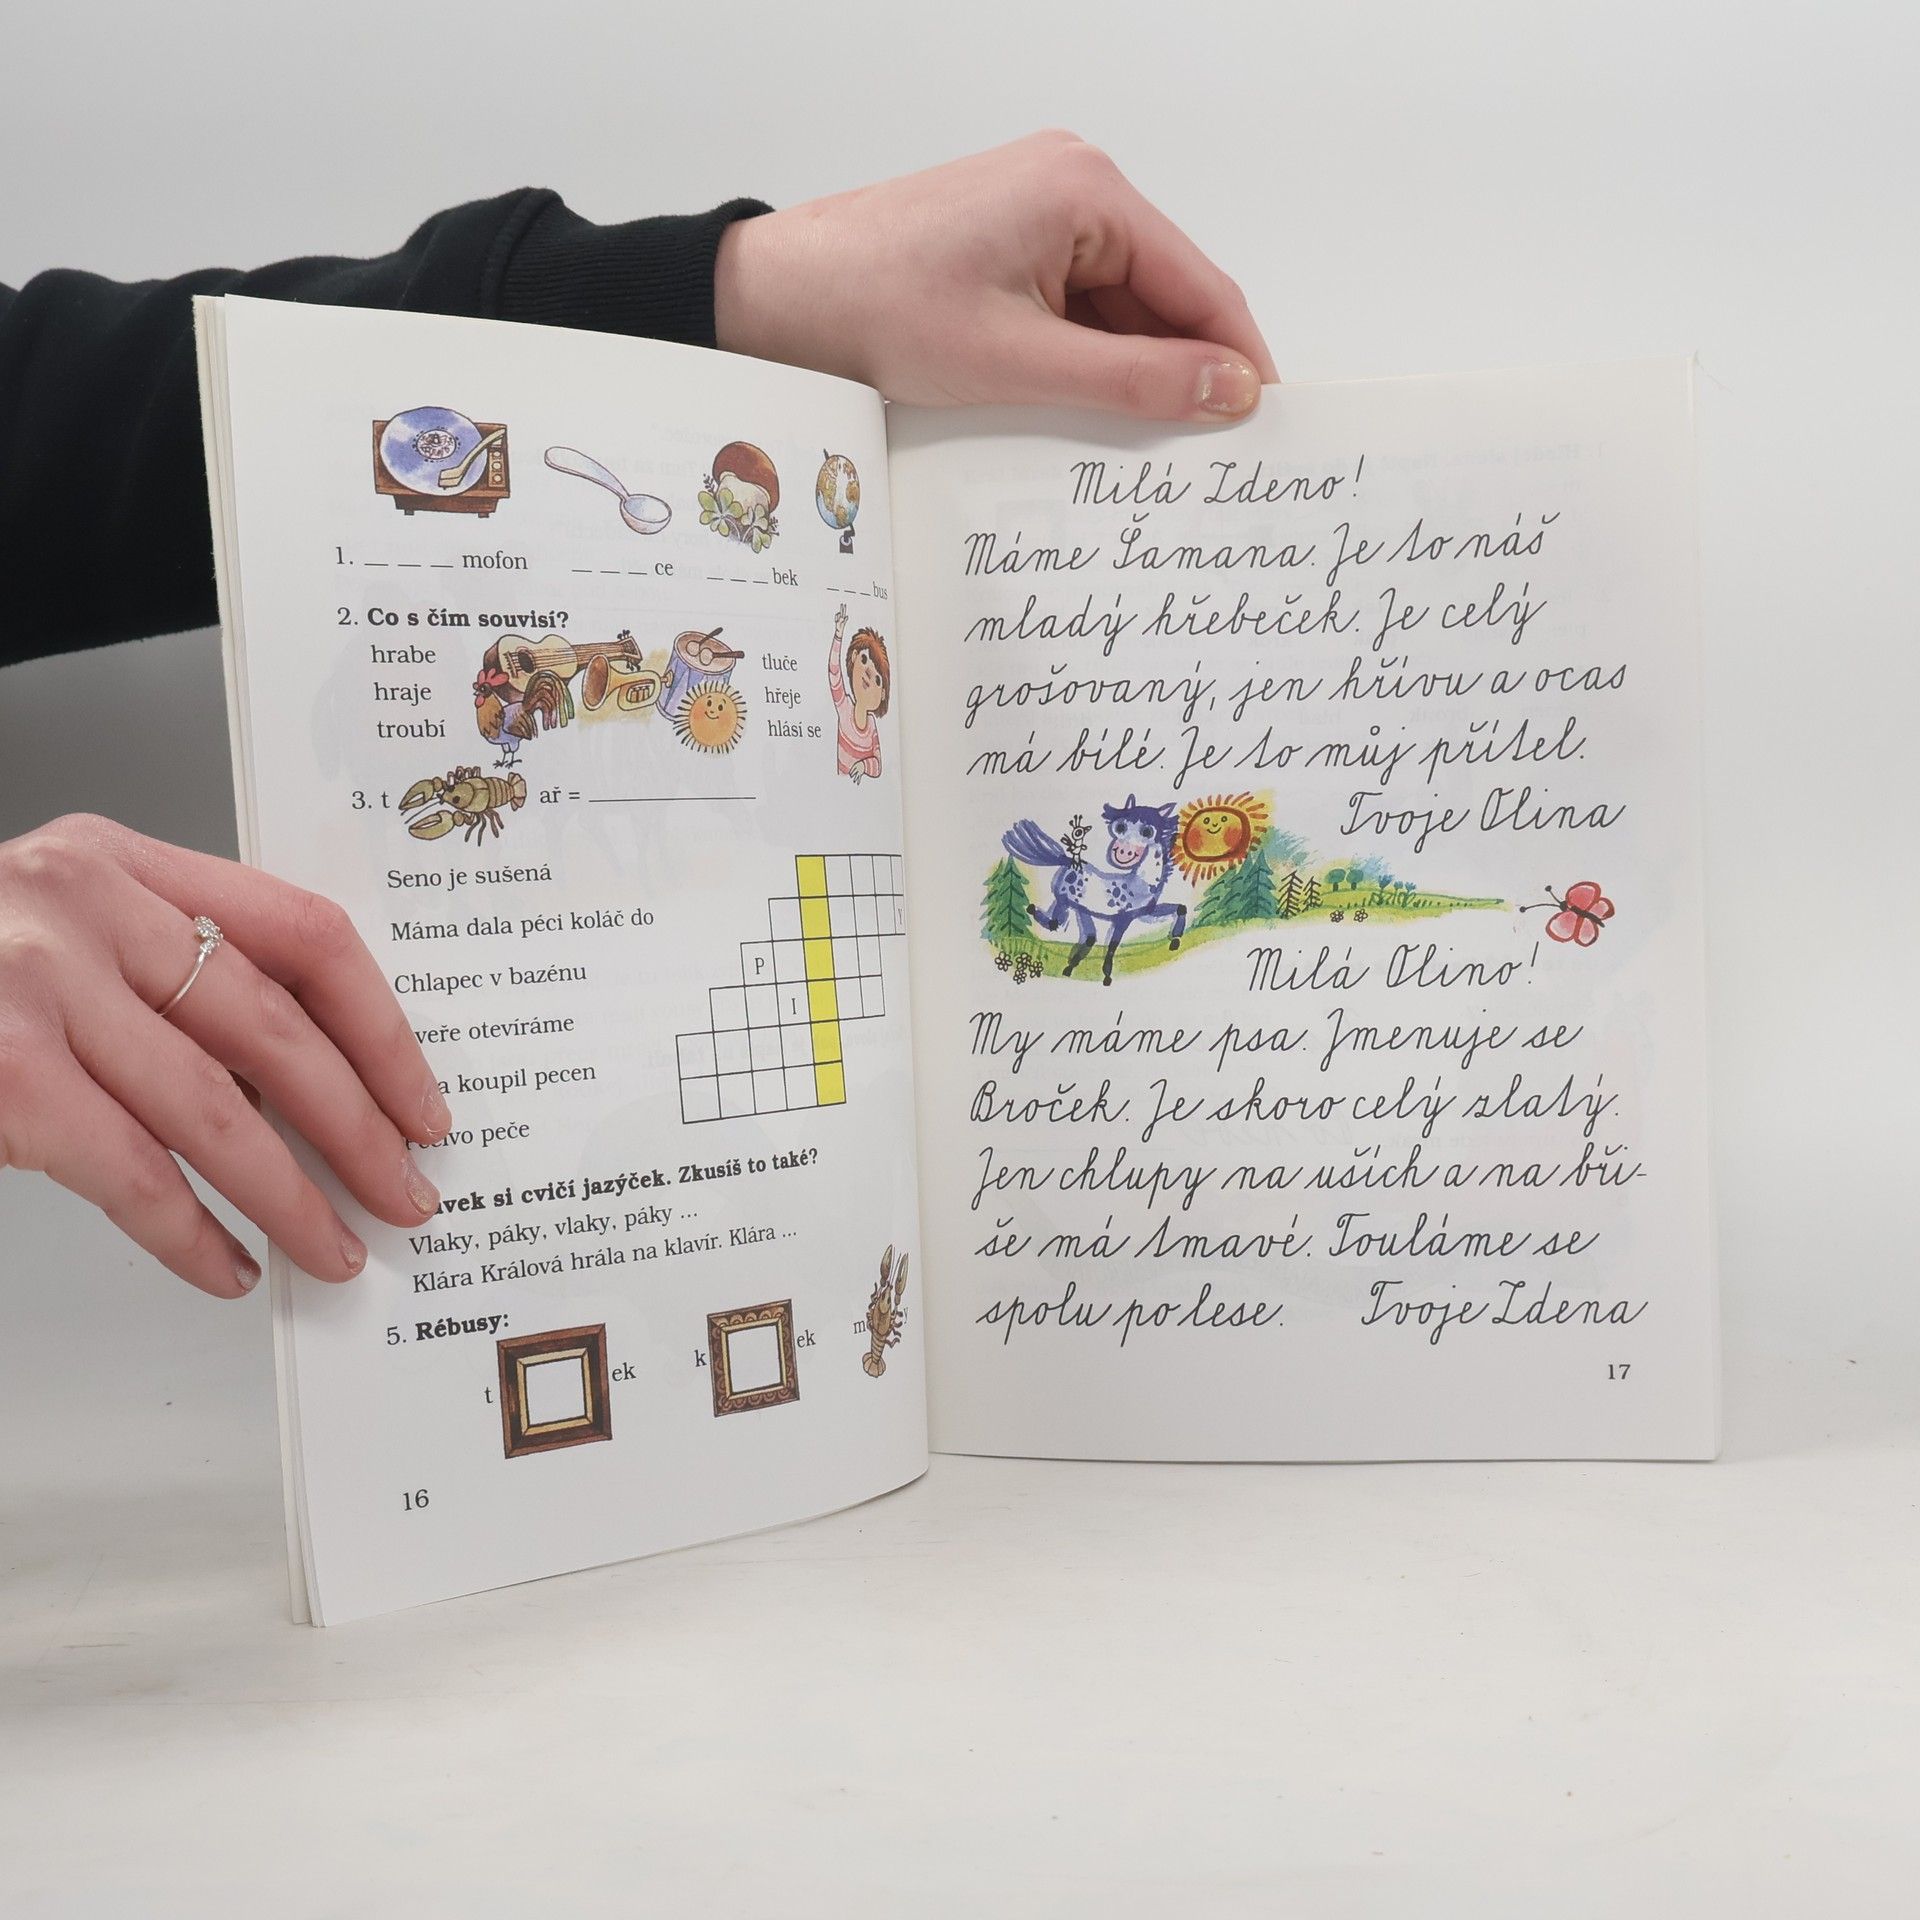 1. _ _ _ _ mofon _ _ _ _ ce _ _ _ bek _ _ _ bus
2. Co s čím souvisí?
hrabe tluče
hraje hřeje
troubí hlásí se
3. t ař = ________
Seno je sušená
Máma dala péci koláč do
Y
Chlapec v bazénu
P
veře otevíráme
I
koupil pecen
peče
si cvičí jazýček. Zkusíš to také?
Vlaky, páky, vlaky, páky ...
Klára Králová hrála na klavír. Klára ...
5. Rébusy:
t ek k ek m y
16
Milá Zdeno!
Máme Šamana. Je to náš
mladý hřebeček. Je celý
grošovaný, jen hřívu a ocas
má bílé. Je to můj přítel.
Tvoje Olina
Milá Olino!
My máme psa. Jmenuje se
Broček. Je skoro celý zlatý.
Jen chlupy na uších a na bři-
še má tmavé. Touláme se
spolu po lese. Tvoje Zdena
17